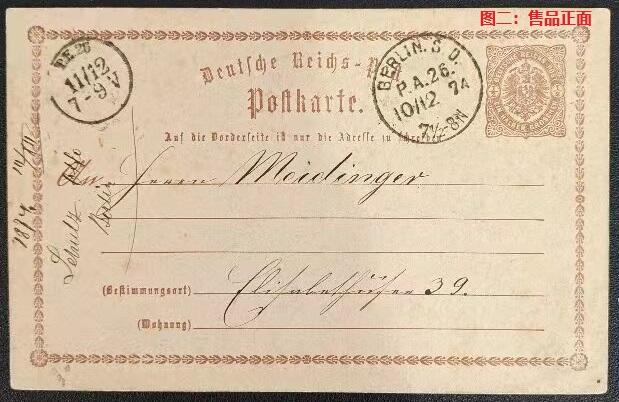 图二：售品正面
P.E. 26
11/12
7-9V
BERLIN. S.O.
P.A. 26.
10/12 74
7½-8N
Deutsche Reichs-Post
Postkarte.
Auf die Vorderseite ist nur die Adresse zu schreiben.
An Herrn Meidinger
(Bestimmungsort) Elisabethufer 39.
(Wohnung)
1874
Schulz
Berlin